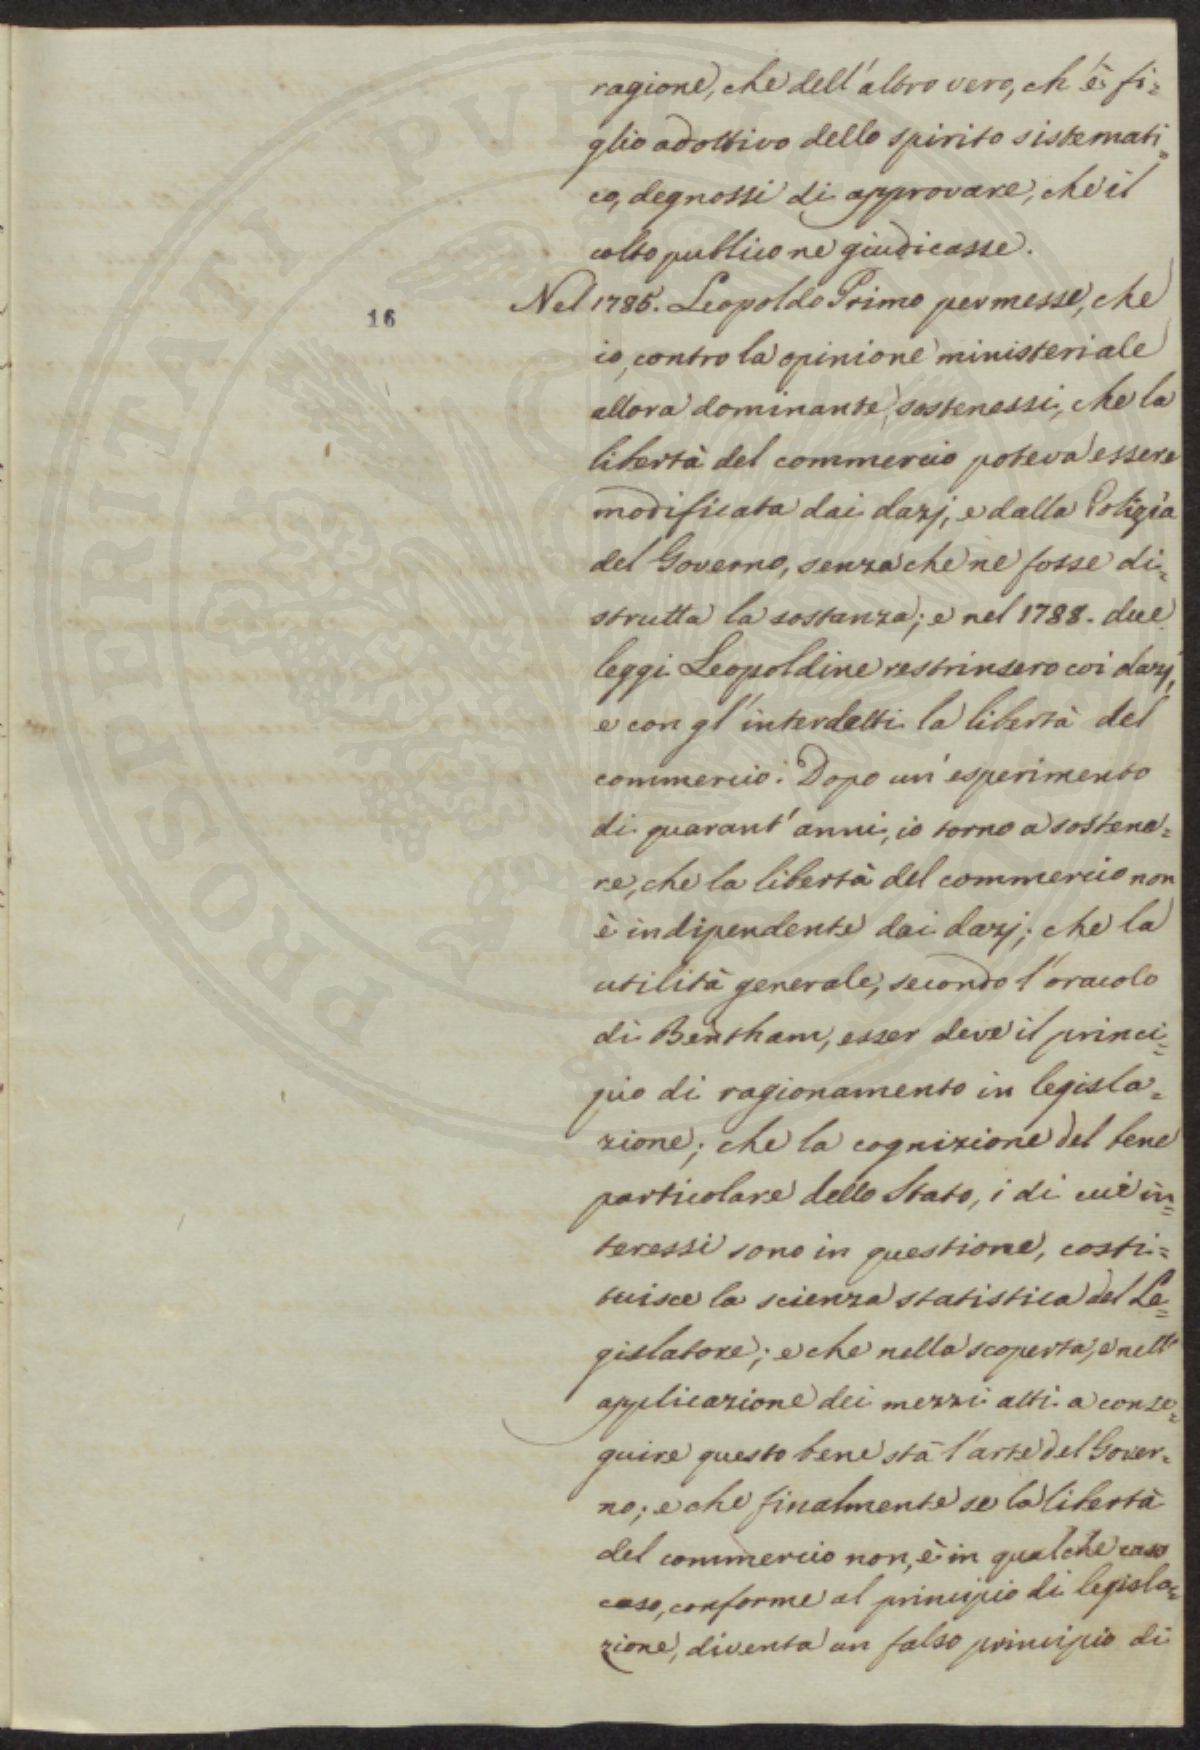 ragione, che dell'altro vero, ch'è fi=
glio adottivo dello spirito sistemati=
co, degnossi di approvare, che il
colto publico ne giudicasse.
16
Nel 1785. Leopoldo Primo permesse, che
io, contro la opinione ministeriale
allora dominante, sostenessi, che la
libertà del commercio poteva essere
modificata dai dazj, e dalla Polizia
del Governo, senza che ne fosse di=
strutta la sostanza; e nel 1788. due
leggi Leopoldine restrinsero coi dazj,
e con gl'interdetti la libertà del
commercio. Dopo un'esperimento
di quarant'anni, io torno a sostene=
re, che la libertà del commercio non
è indipendente dai dazj; che la
utilità generale, secondo l'oracolo
di Bentham, esser deve il princi=
pio di ragionamento in legisla=
zione; che la cognizione del bene
particolare dello Stato, i di cui in=
teressi sono in questione, costi=
tuisce la scienza statistica del Le=
gislatore; e che nella scoperta, e nell'
applicazione dei mezzi atti a conse=
guire questo bene stà l'arte del Gover=
no; e che finalmente se la libertà
del commercio non, è in qualche caso
caso, conforme al principio di legisla=
zione, diventa un falso principio di
PROSPERITATI PVBLICAE